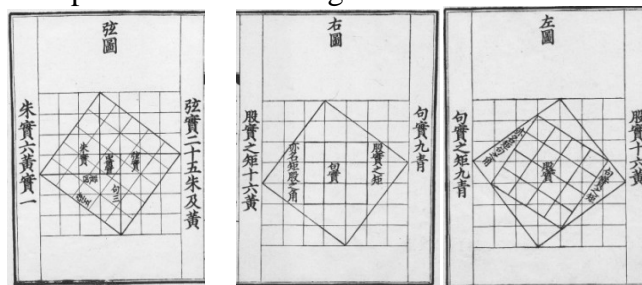 弦圖
弦實二十五朱及黃
朱實六黃實一
朱實
句三
右圖
句實九青
股實之矩十六黃
股實之矩
句實
亦名矩股之角
左圖
股實十六黃
句實之矩九青
股實
句實之矩